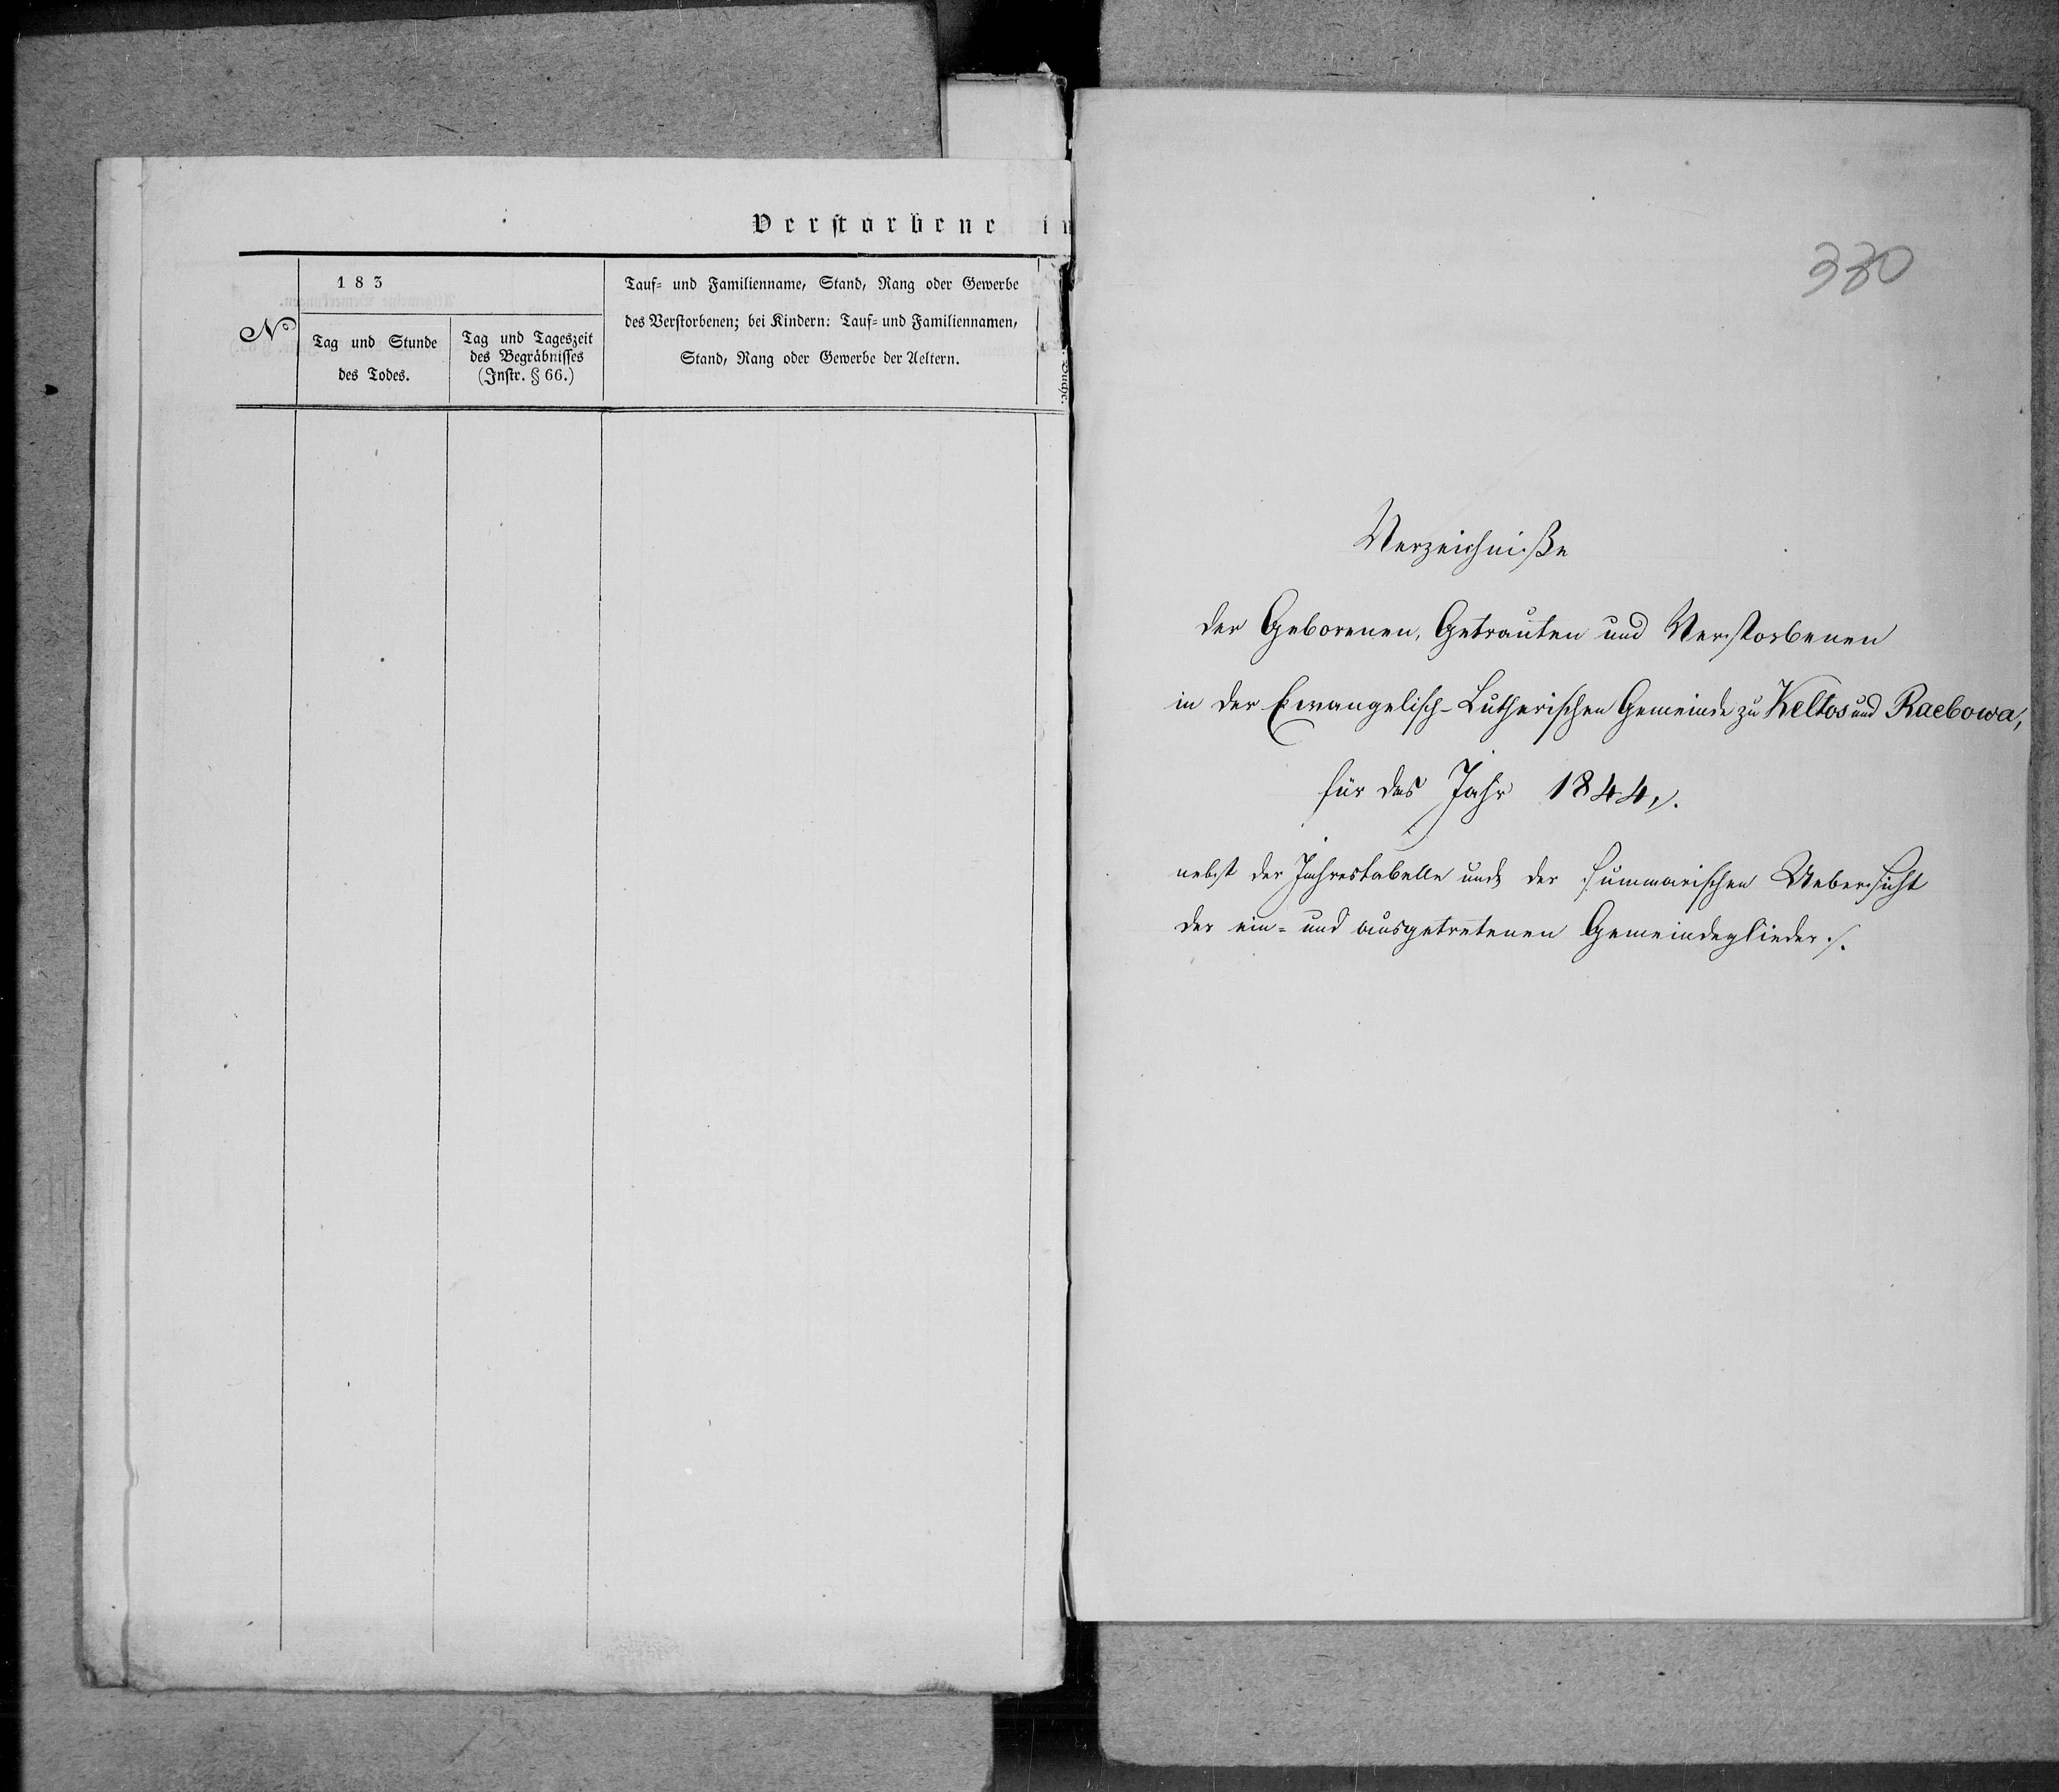 Verstorbene in
No
183
Tag und Stunde
des Todes.
Tag und Tageszeit
des Begräbnisses
(Instr. § 66.)
Tauf- und Familienname, Stand, Rang oder Gewerbe
des Verstorbenen; bei Kindern: Tauf- und Familiennamen,
Stand, Rang oder Gewerbe der Aeltern.
330
Verzeichniße
der Geborenen, Getrauten und Verstorbenen
in der Ewangelisch-Lutherischen Gemeinde zu Keltos und Raebowa,
für das Jahr 1844,
nebst der Jahrestabelle und der summarischen Uebersicht
der ein- und ausgetretenen Gemeindeglieder.